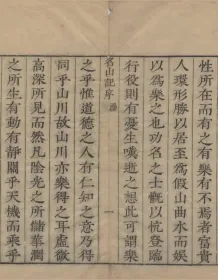 性所在而有之樂有不焉者富貴
人環形勝以居至為假山曲水而娛
以為樂之也功名之士以登臨
行役則有憂生嘆逝之想此可謂樂
名山記序 一
之乎惟道德之人有仁知之意乃得
詞乎山川故山川亦樂得之耳虛敞
高深所見而然凡陰光之所儲華潤
之所生有動有靜關乎天機而乘乎